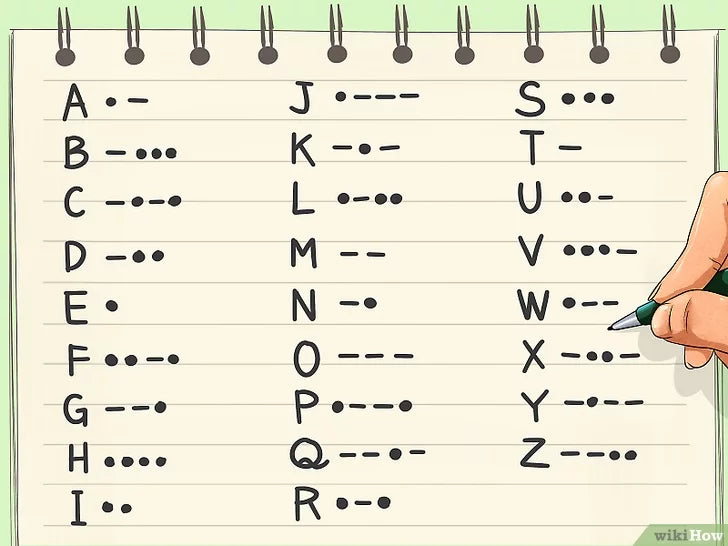 A •– J •––– S •••
B –••• K –•– T –
C –•–• L •–•• U ••–
D –•• M –– V •••–
E • N –• W •––
F ••–• O ––– X –••–
G ––• P •––• Y –•––
H •••• Q ––•– Z ––••
I •• R •–•
wikiHow